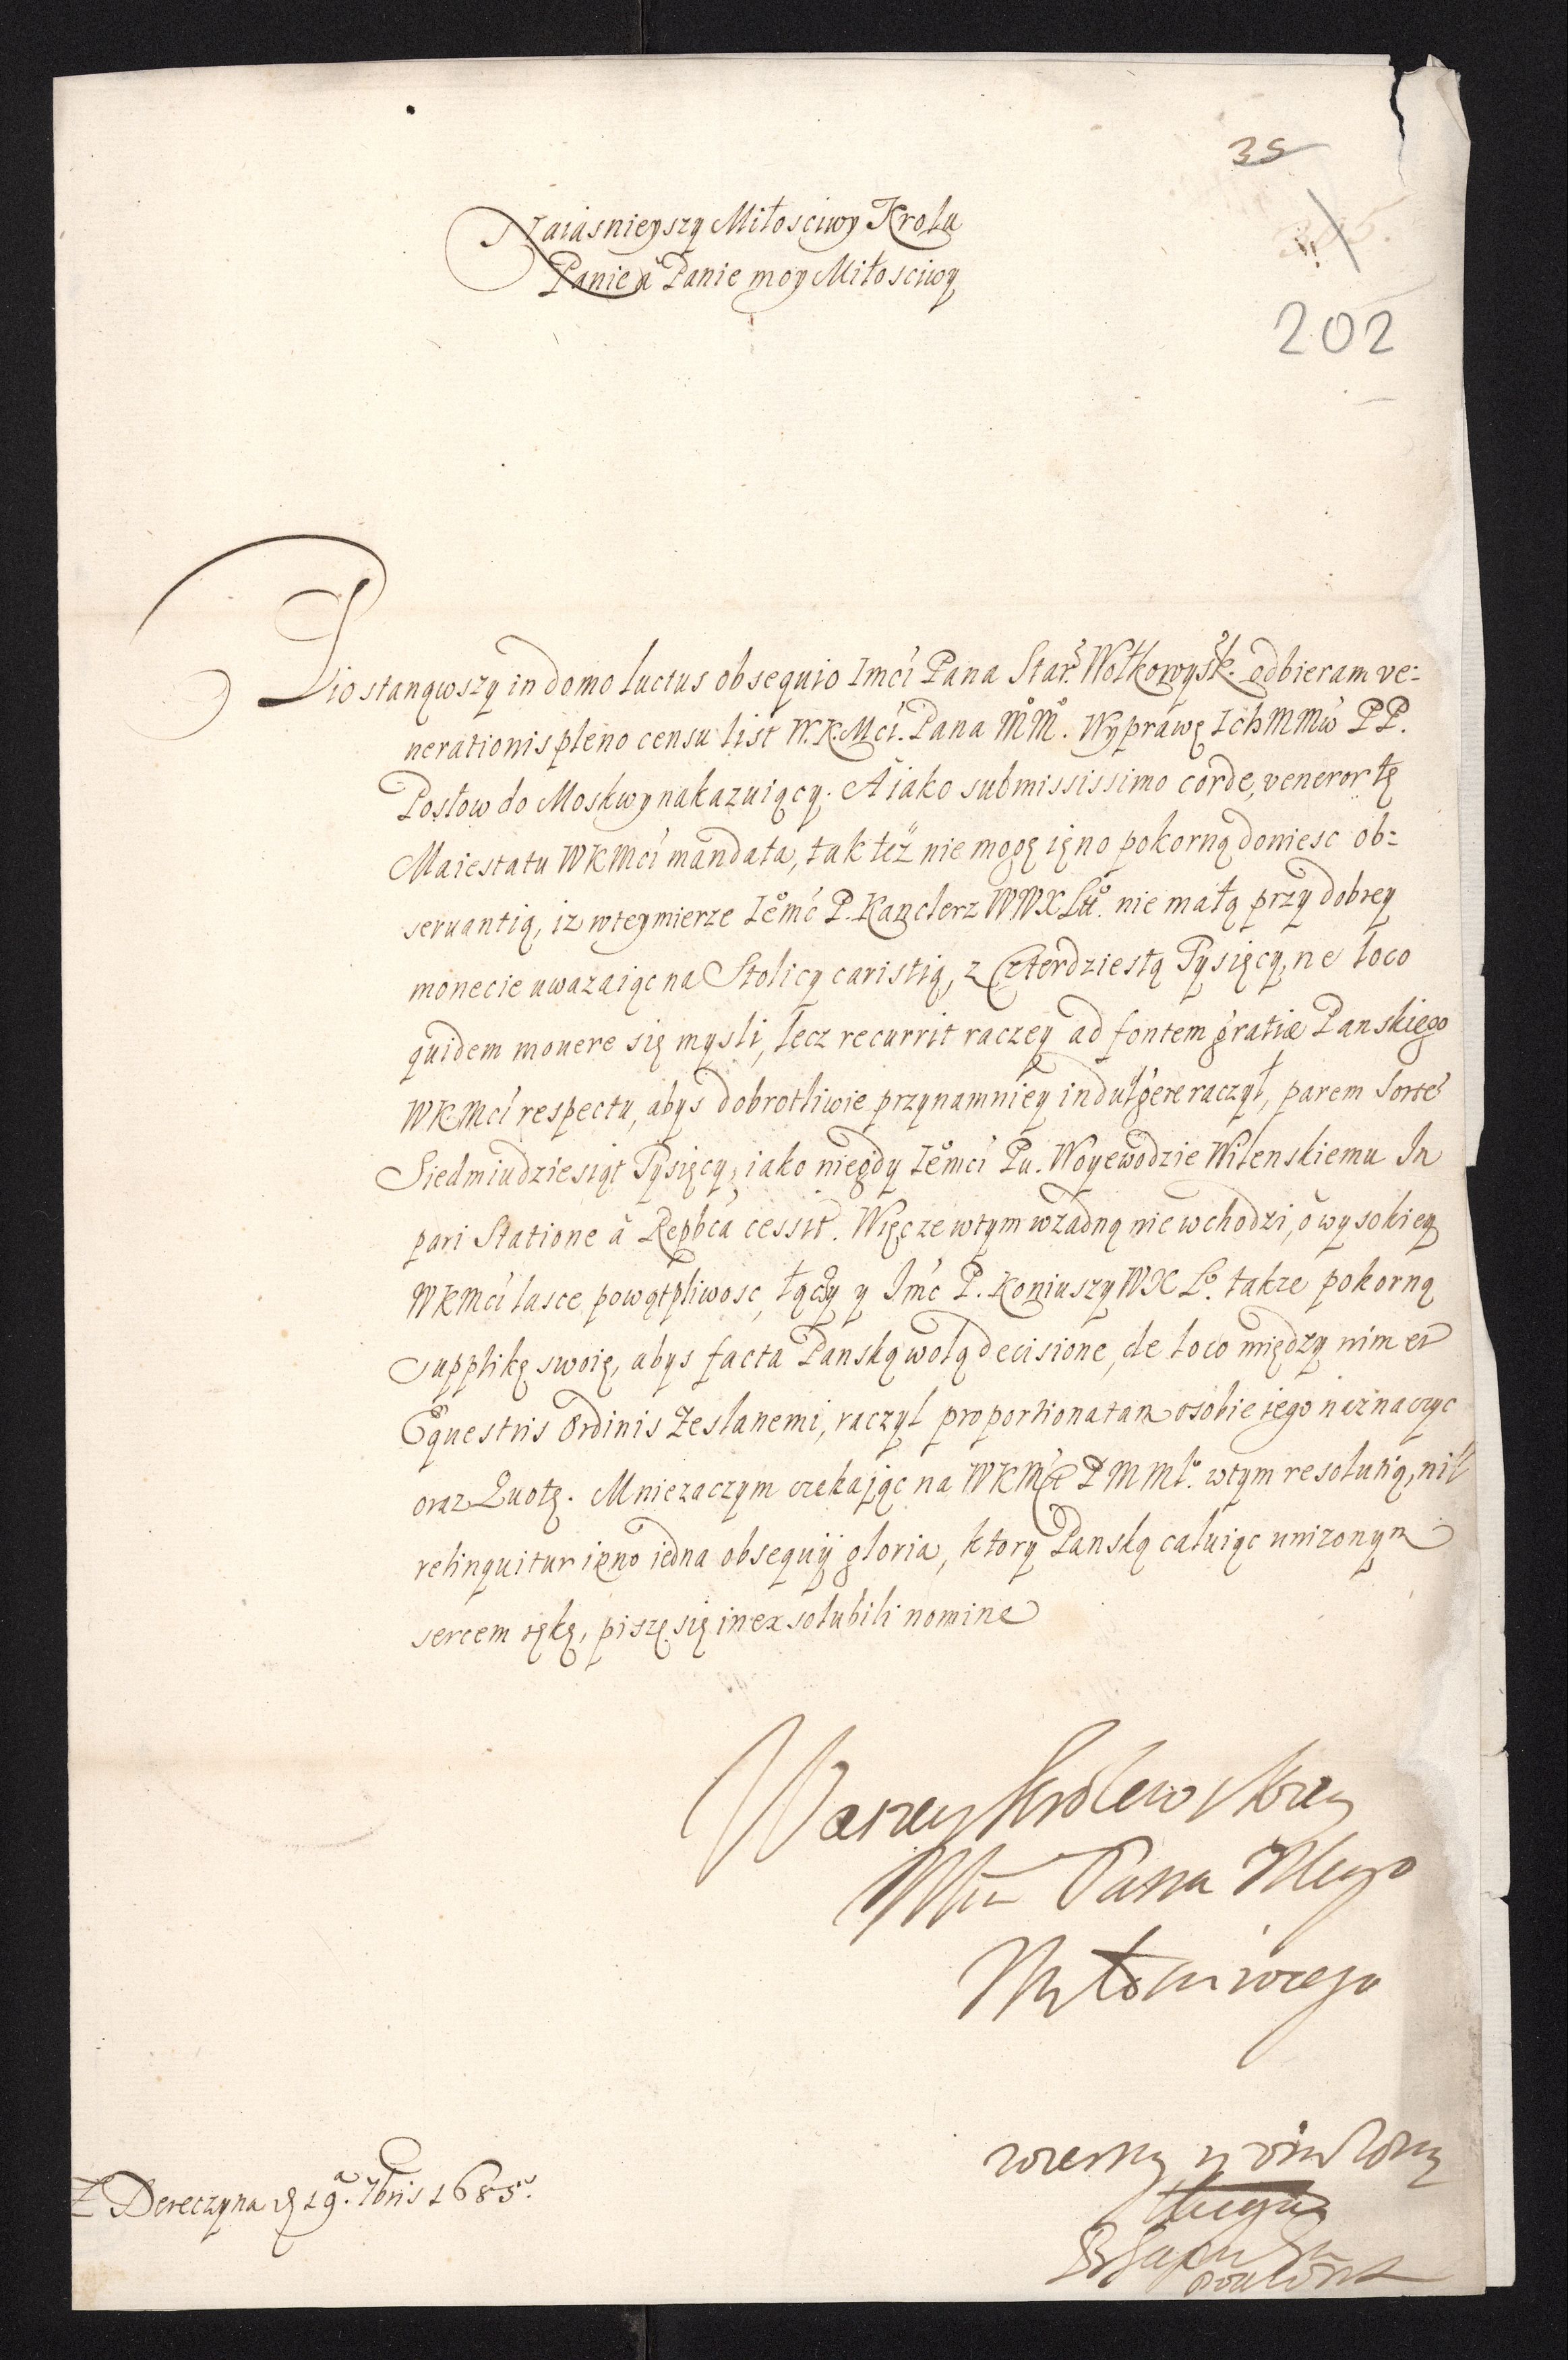 35
202
Naiasnieyszy Miłosciwy Krolu
Panie a Panie moy Miłosciwy
Dostanąwszy in domo luctus obsequio Imći Pana Star: Wołkowysk. odbieram ve:
nerationis pleno censu list W.K.Mći. Pana MM. Wyprawę IchMMćiow PP.
Posłow do Moskwy nakazuiący. A iako submississimo corde, veneror tę
Maiestatu WKMći mandata, tak też nie mogę ięno pokorną doniesc ob:
servantią, iz wtey mierze Ieomć P. Kanclerz WWXLitto. nie małą przy dobrey
monecie uwazaiąc na Stolicy caristią, z Czterdziestą Tysięcy, ne loco
quidem movere się mysli, lecz recurrit raczey ad fontem gratiæ Panskiego
WKMći respectu, abys dobrotliwie przynamniey indulgere raczył, parem sorte
Siedmiudziesiąt Tysięcy, iako niegdy Ieomći Pu. Woyewodzie Wilenskiemu In
pari Statione à Repbca cessit. Więc ze wtym wzadną nie wchodzi, o wysokiey
WKMći lasce powątpliwosc, łączy y Imć P. Koniuszy WXLo. takze pokorną
supplikę swoię, abys facta Panską wolą decisione, de loco między nim et
Equestris Ordinis Zeslanemi, raczyl proportionatam osobie iego naznaczyc
oraz Quotę. Mnie zaczym czekaiąc na WKMći PMMo. wtym resolutią, nil
relinquitur ięno iedna obsequij gloria, ktory Panską caluiąc unizonym
sercem rękę, piszę się inexsolubili nomine
Waszey Krolewskiey
Mći Pana Mego
Miłosciwego
wierny y
sługa
Z Dereczyna d 19a. 7bris 1685.